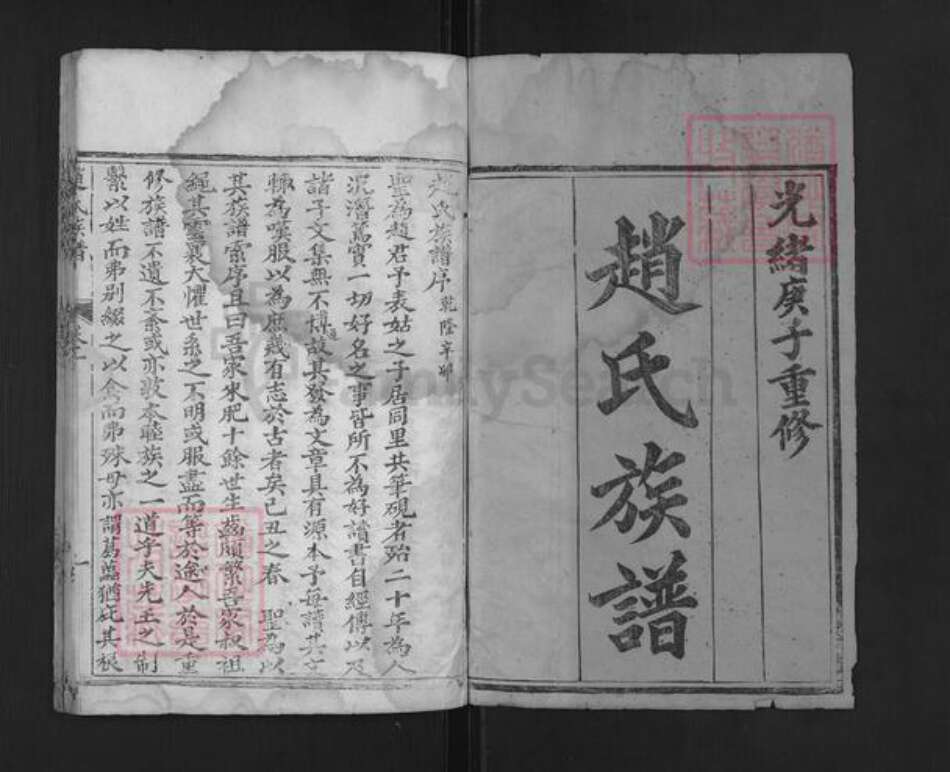 光緒庚子重修
趙氏族譜
趙氏族譜序 乾隆辛卯
聖為趙君予表姑之子居同里共筆硯者殆二十年為人
沉潛篤實一切好名之事皆所不為好讀書自經傳以及
諸子文集無不博該其發為文章具有源本予每讀其文
輒為嘆服以為庶幾有志於古者矣己丑之春 聖為以
其族譜索序且曰吾家來肥十餘世生齒頗繁吾家叔祖
繩其雲襄大懼世系之不明或服盡而等於途人於是重
修族譜不遺不紊或亦收本睦族之一道乎夫先王之制
繫以姓而弗別綴之以食而弗殊毋亦謂葛藟猶庇其根
FamilySearch